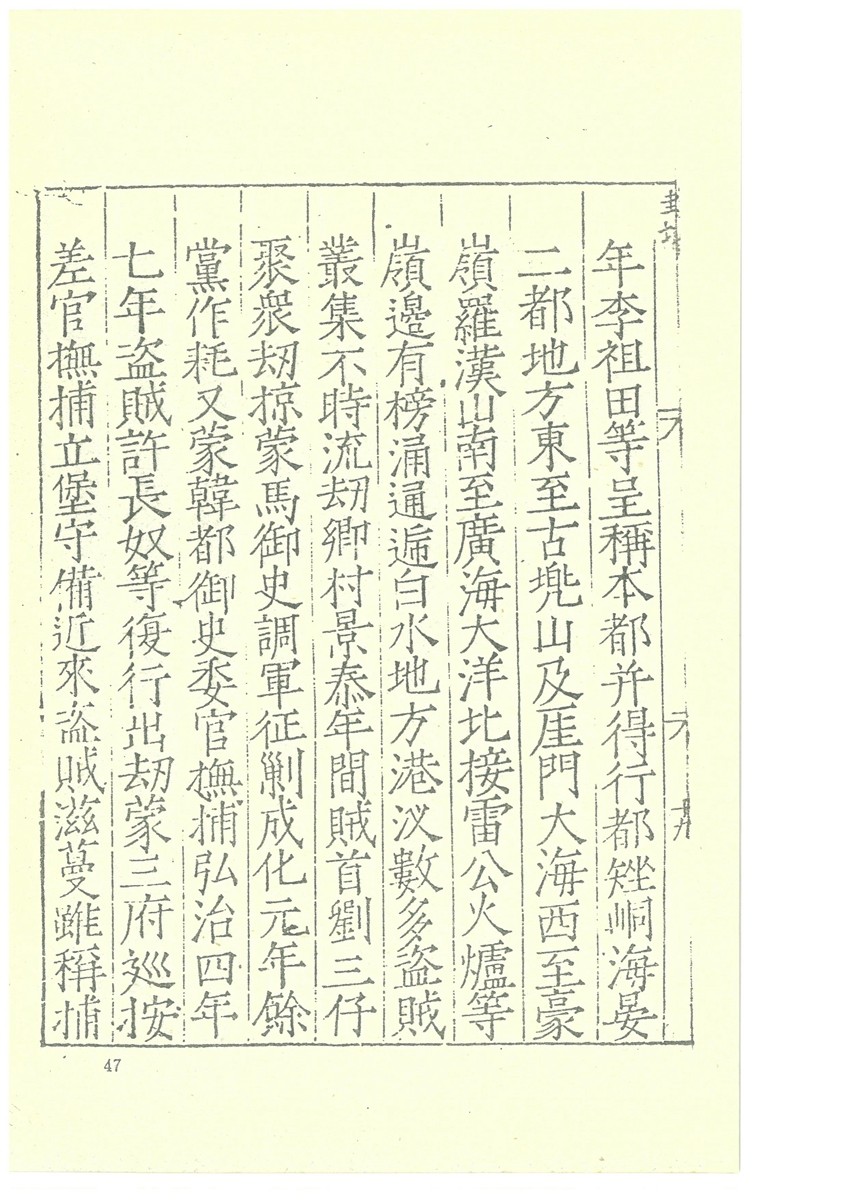 年李祖田等呈稱本都并得行都矬峒海晏
二都地方東至古兠山及厓門大海西至豪
嶺羅漢山南至廣海大洋北接雷公火爐等
嶺邊有榜涌通逓白水地方港汊數多盜賊
叢集不時流刧鄉村景泰年間賊首劉三仔
聚衆刧掠蒙馬御史調軍征剿成化元年餘
黨作耗又蒙韓都御史委官撫捕弘治四年
七年盜賊許長奴等復行出刧蒙三府廵按
差官撫捕立堡守備近來盜賊滋蔓雖稱捕
十九
47